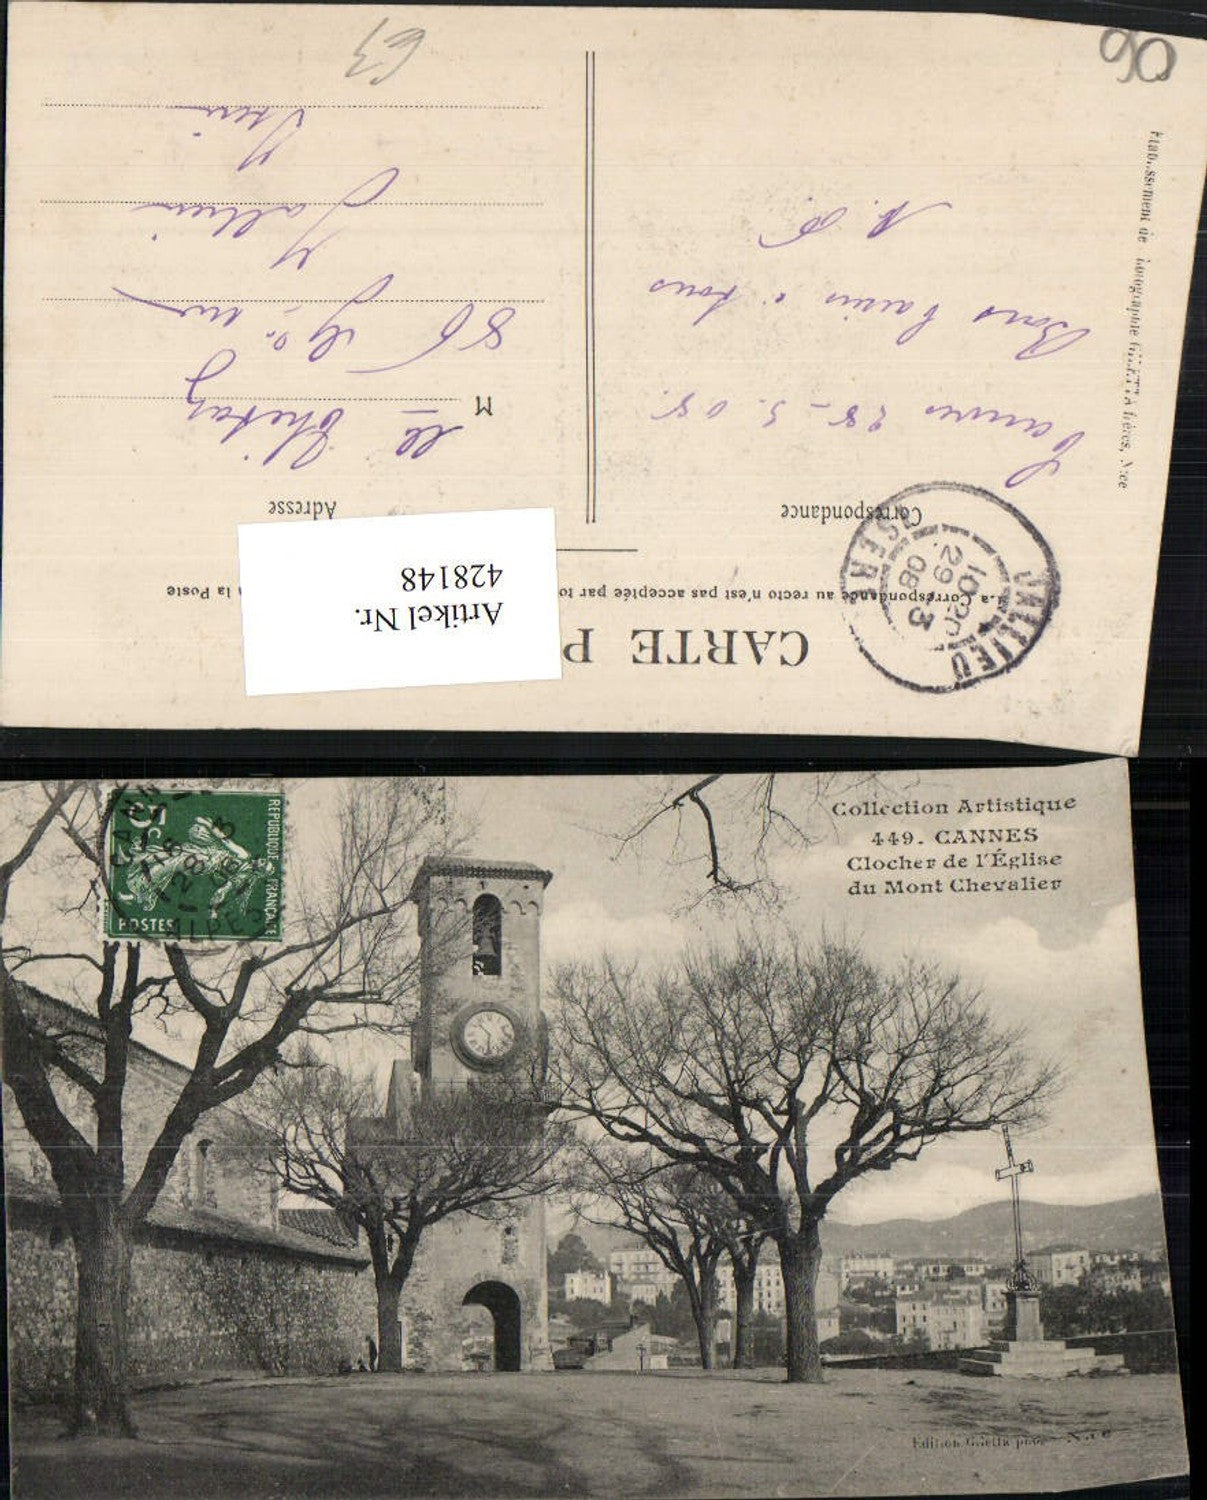 CARTE P
La Correspondance au recto n'est pas acceptée par to
la Poste
Artikel Nr.
428148
Correspondance
Adresse
JALLIEU
ISERE
10 20
29 - 3
08
Cannes 28-3.08.
Bons baisers à tous
M
Jallieu
Isère
63
06
Etablissement de Photographie GILETTA frères, Nice
Collection Artistique
449. CANNES
Clocher de l'Église
du Mont Chevalier
REPUBLIQUE FRANÇAISE
5c
POSTES
Edition Giletta phot. Nice